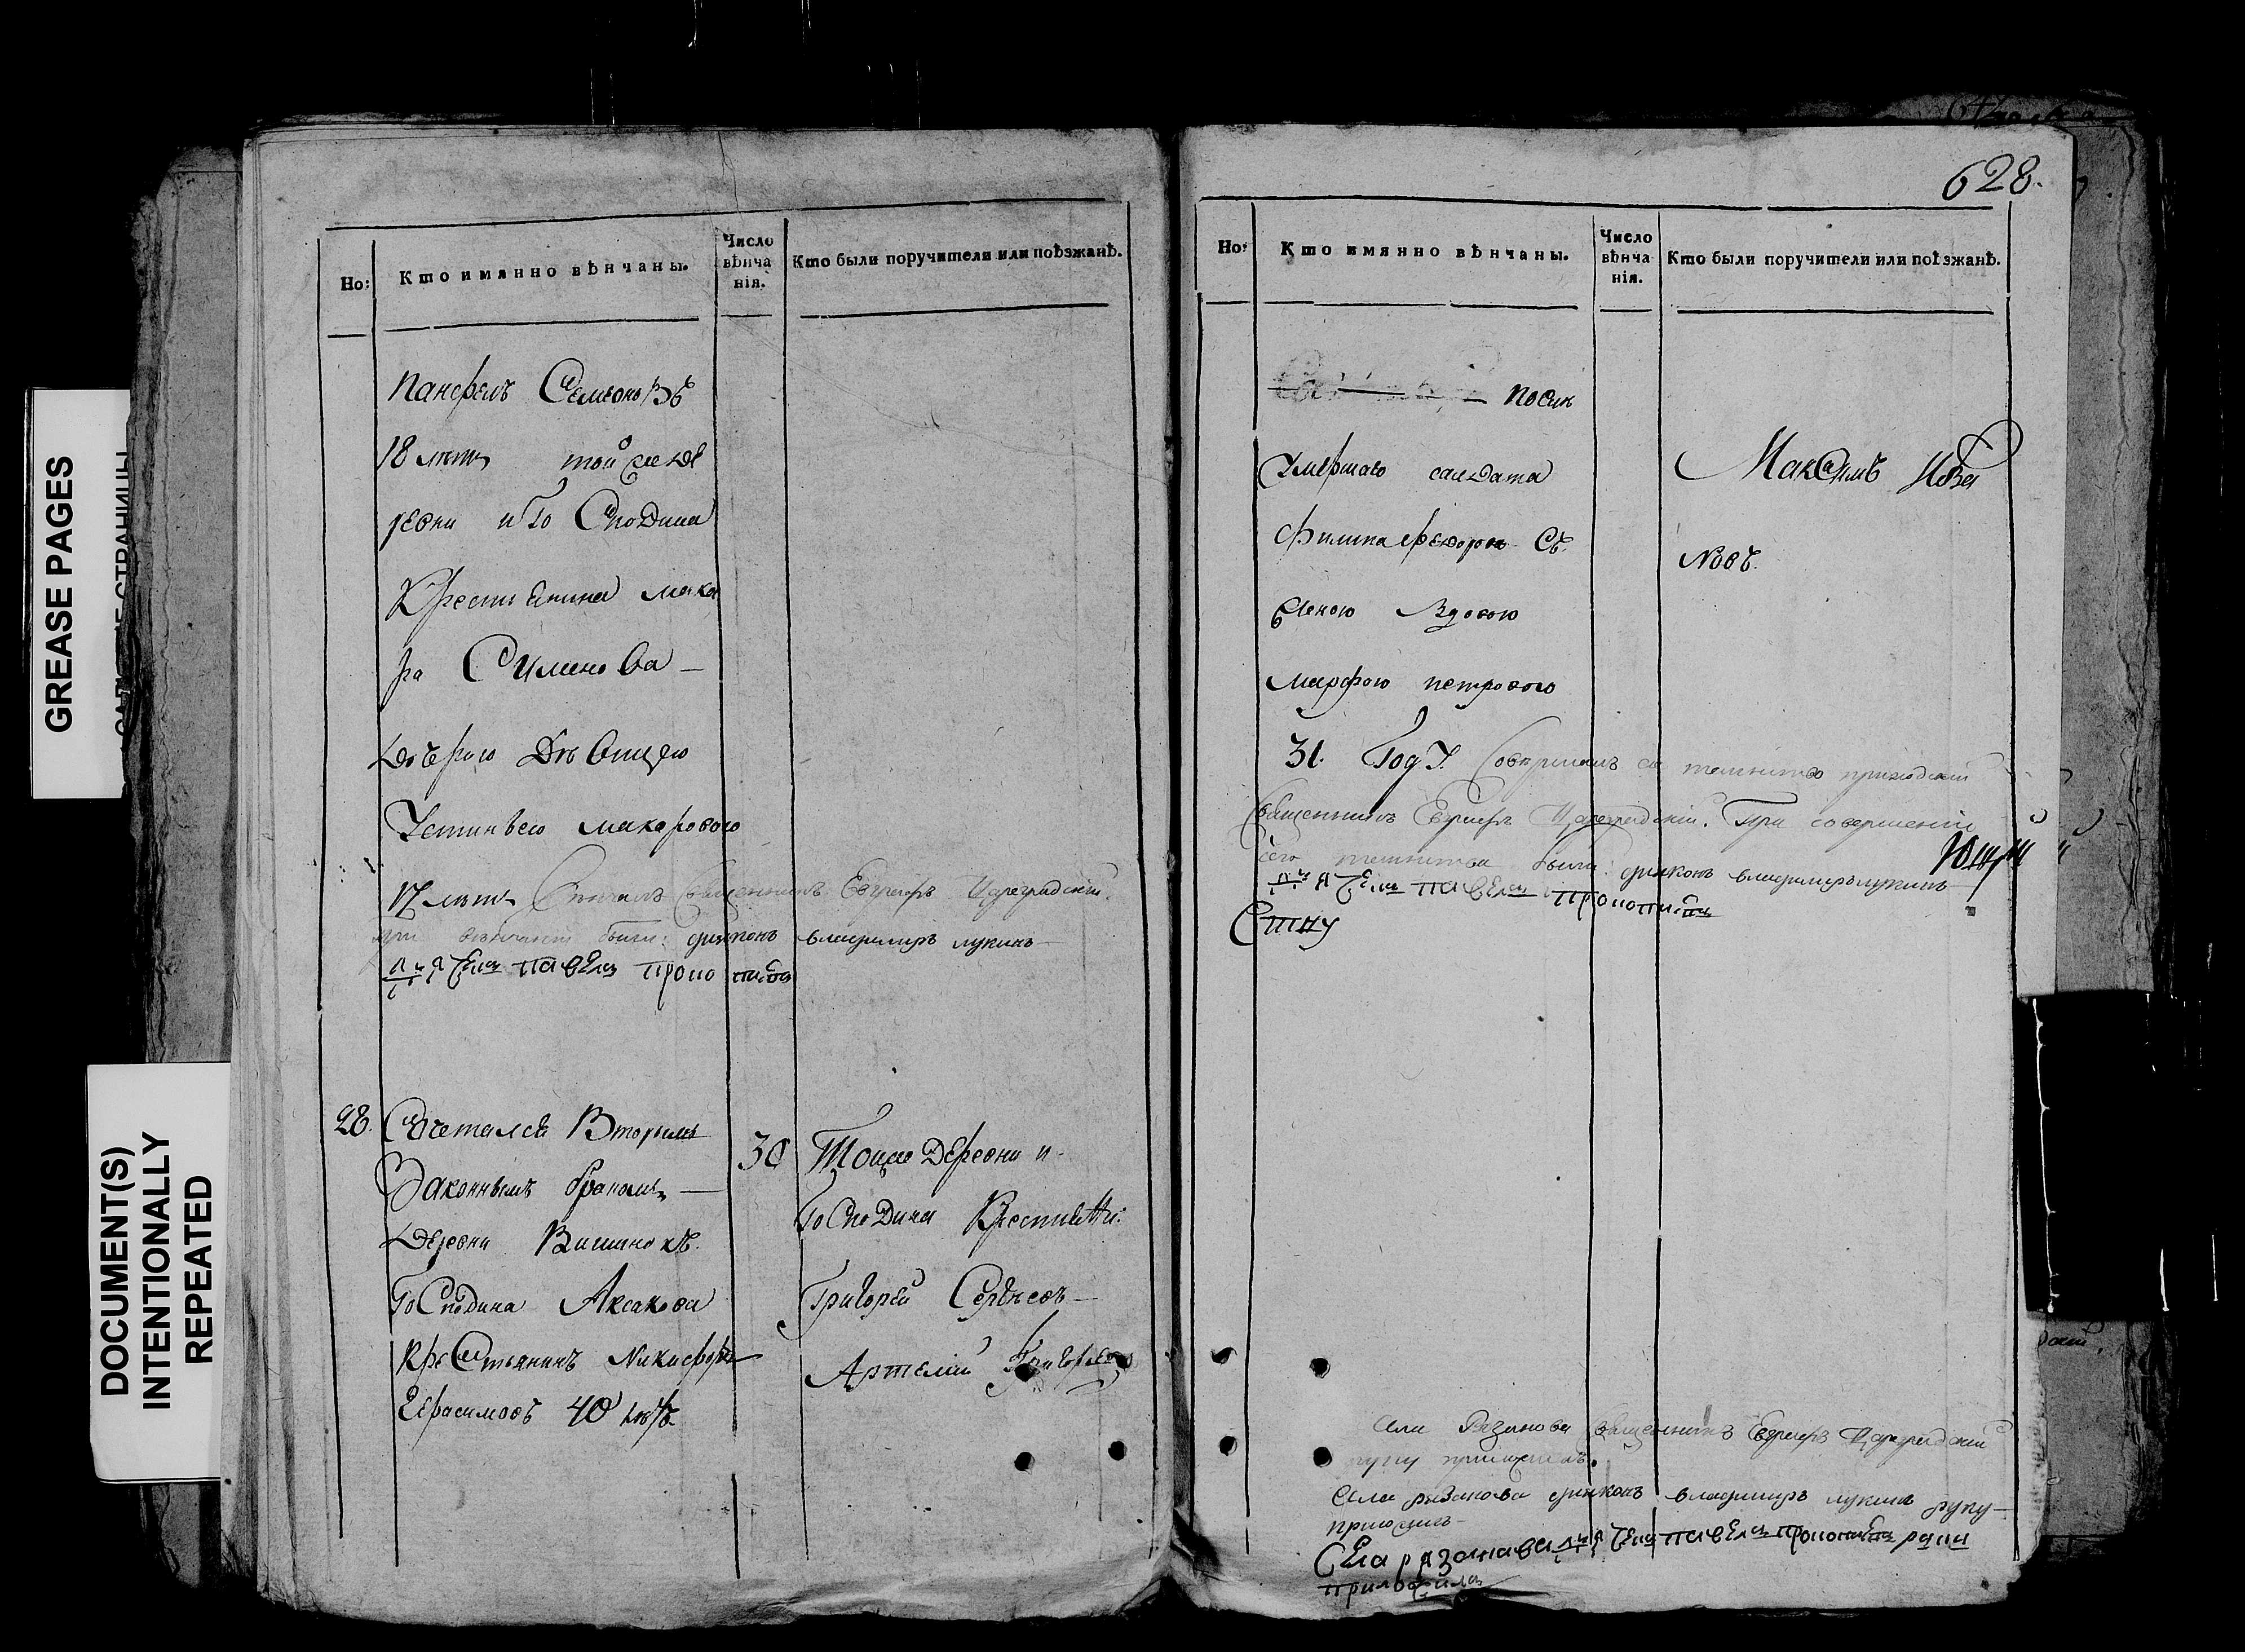 GREASE PAGES
DOCUMENT(S)
INTENTIONALLY
REPEATED
Но:
Кто имянно вѣнчаны.
Число
вѣнча
нія.
Кто были поручители или поѣзжанѣ.
Панфелъ Семеновъ
18 летъ той же де
ревни и Го Сподина
Крестьянина мака
ра Симеонова
Дочерью Девицею
Устиньею макаровою
17 летъ Священникъ Евграфъ Цареградскій.
при были: диаконъ владимиръ лукинъ
павелъ
28. Сочетался Вторымъ
Законнымъ бракомъ
Деревни
ГоСподина Аксакова
КреСтьянинъ Никифоръ
Герасимовъ 40 летъ
30
Тойже Деревни и
ГоСподина Крестьяни:
Григорей Сергеевъ
Артемій Григорьевъ
628.
Но:
Кто имянно вѣнчаны.
Число
вѣнча
нія.
Кто были поручители или поѣзжанѣ.
Умершаго салдата
Филипа Федорова Съ
Женою Вдовою
марфою петровою
31. Году. Совершалъ сіе таинство приходскій
Священникъ Евграфъ Цареградскій. При совершеніи
сего таинства были: диаконъ владимиръ лукинъ
павелъ
МакСимъ Ива
Новъ.
Села Рязанова священникъ Евграфъ Цареградскій
руку приложилъ.
Села рязанова диаконъ владимиръ лукинъ руку
приложилъ
Села рязанава павелъ руки
приложилъ